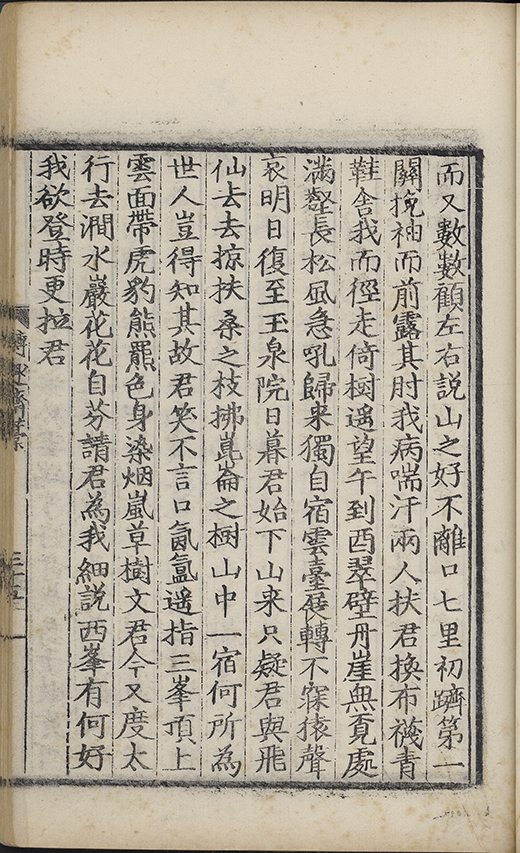 而又數數顧左右說山之好不離口七里初躋第一
關挽袖而前露其肘我病喘汗兩人扶君換布襪青
鞋舍我而徑走倚樹遥望午到酉翠壁丹崖無覔處
滿壑長松風怒吼歸来獨自宿雲臺展轉不寐猿聲
哀明日復至玉泉院日暮君始下山来只疑君與飛
仙去去掠扶桑之枝拂崑崙之樹山中一宿何所為
世人豈得知其故君笑不言口氤氳遥指三峯頂上
雲面帶虎豹熊羆色身染烟嵐草樹文君今又度太
行去澗水巖花花自芬請君為我細說西峯有何好
我欲登時更拉君
三十五